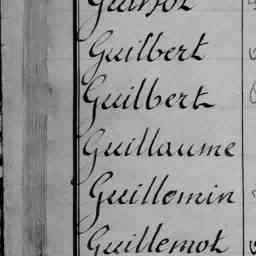 Guilbert
Guilbert
Guillaume
Guillemin
Guillemot